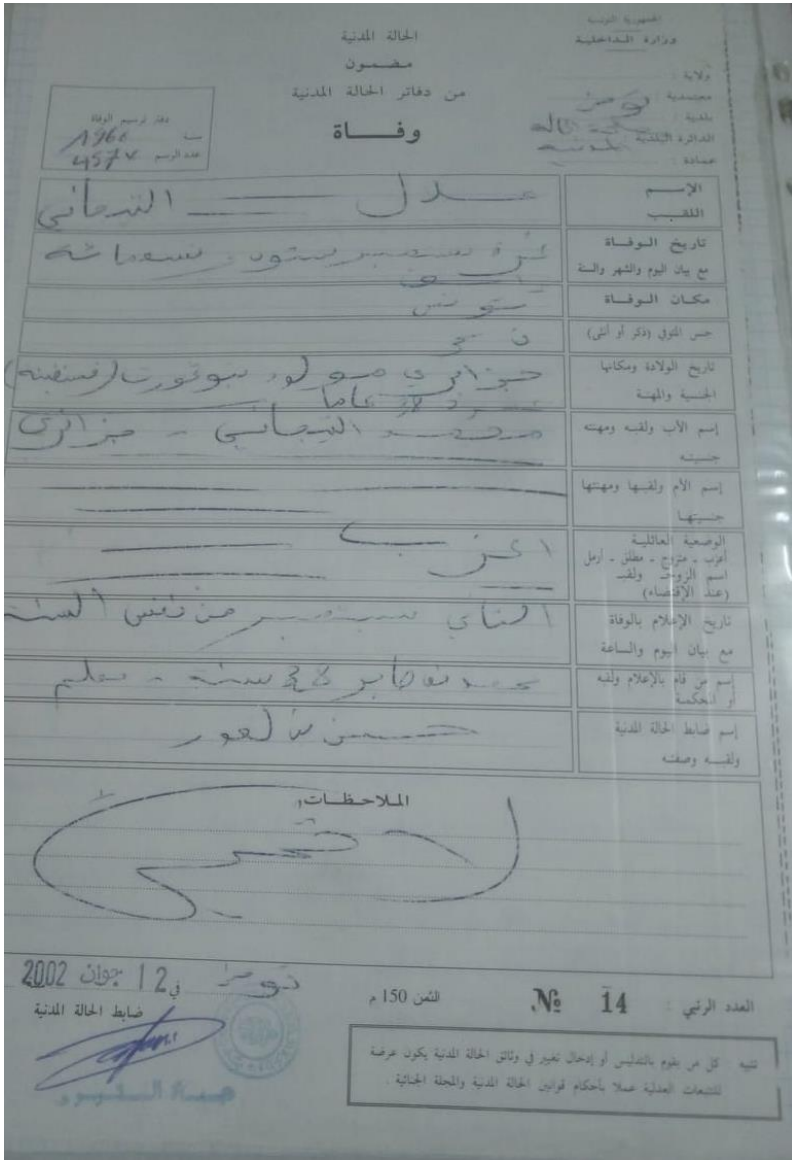 الجمهورية التونسية
وزارة الداخلية
ولاية :
معتمدية :
بلدية :
الدائرة البلدية
عمادة :
الحالة المدنية
مضمون
من دفاتر الحالة المدنية
وفاة
دفتر ترسيم الوفاة
سنة 1960
عدد الرسم
الإسم
اللقب
التيجاني
تاريخ الوفاة
مع بيان اليوم والشهر والسنة
غرة سبتمبر ستون وتسعمائة
وألف
مكان الوفاة
تونس
جنس المتوفي (ذكر أو أنثى)
تاريخ الولادة ومكانها
الجنسية والمهنة
جزائري مولود بتوقورت (قسنطينة)
عاما
إسم الأب ولقبه ومهنته
جنسيته
محمد التيجاني - جزائري
إسم الأم ولقبها ومهنتها
جنسيتها
الوضعية العائلية
أعزب - متزوج - مطلق - أرمل
اسم الزوج ولقبه
(عند الإقتضاء)
اعزب
تاريخ الإعلام بالوفاة
مع بيان اليوم والساعة
الثاني سبتمبر من نفس السنة
إسم من قام بالإعلام ولقبه
أو المحكمة
سنة - معلم
إسم ضابط الحالة المدنية
ولقبه وصفته
حسن
الملاحظات:
لا شيء
تونس في 12 جوان 2002
ضابط الحالة المدنية
العدد الرتبي : 14 №
الثمن 150 م
تنبيه : كل من يقوم بالتدليس أو إدخال تغيير في وثائق الحالة المدنية يكون عرضة
للتتبعات العدلية عملا بأحكام قوانين الحالة المدنية والمجلة الجنائية .